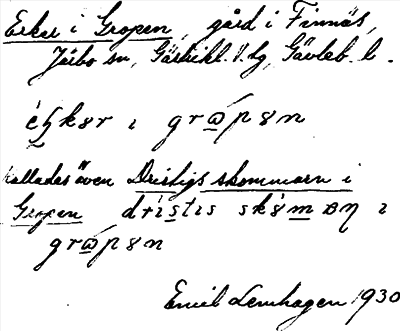 Erker i Gropen, gård i Finnäs,
Järbo sn, Gästrikl. V. hg, Gävleb. l.
i grώ̲pɞn
kallades även Dristigs skommarn i
Gropen drı́s̲tis i
grώ̲pɞn
Emil Lenhagen 1930